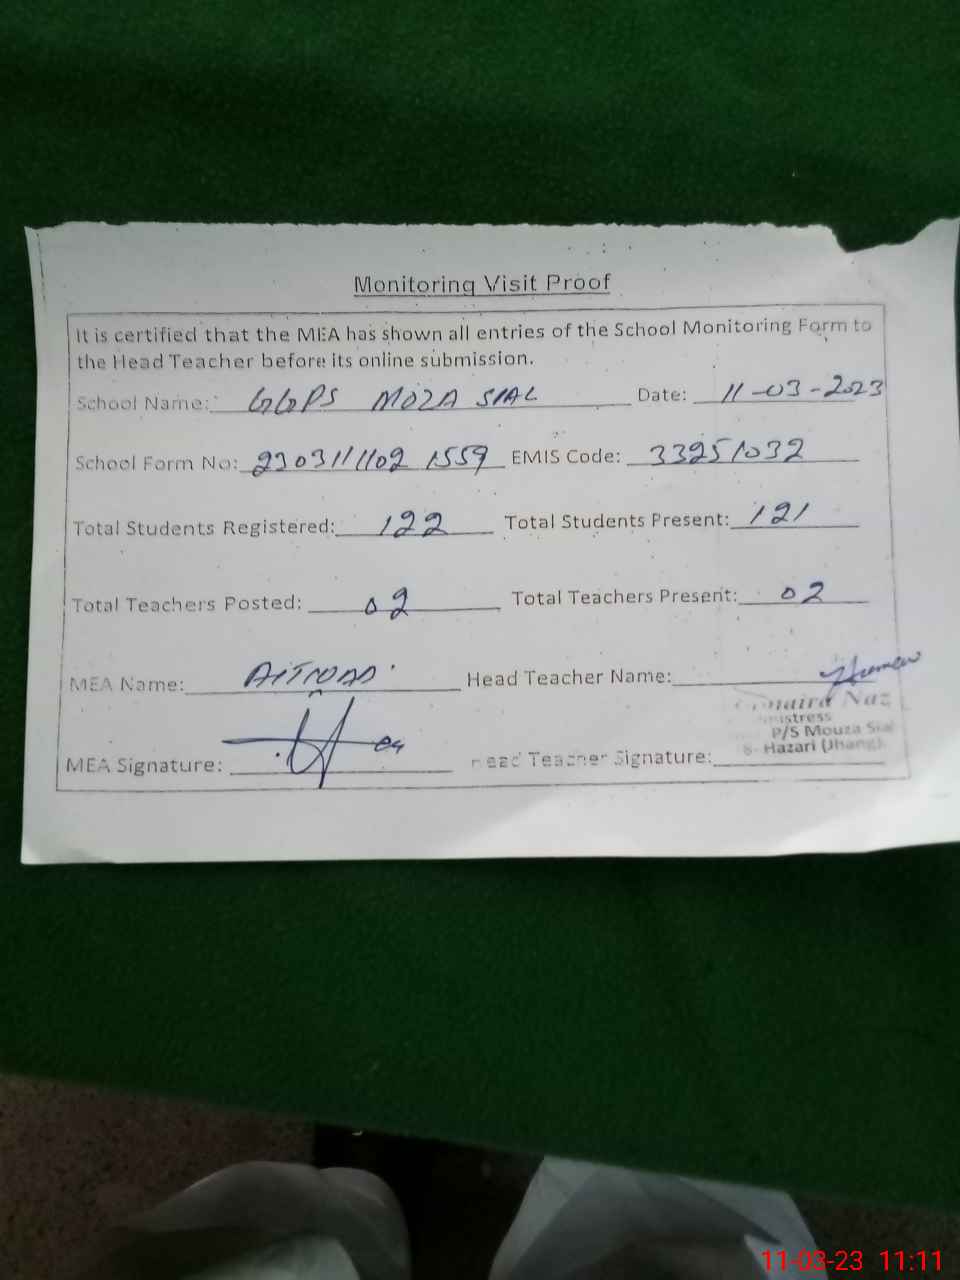 Monitoring Visit Proof
It is certified that the MEA has shown all entries of the School Monitoring Form to
the Head Teacher before its online submission.
School Name: GGPS MOZA SIAL Date: 11-03-2023
School Form No: 2303111102 1559 EMIS Code: 33251032
Total Students Registered: 122 Total Students Present: 121
Total Teachers Posted: 02 Total Teachers Present: 02
MEA Name: Head Teacher Name:
Naz
P/S Mouza Sial
Hazari (Jhang)
MEA Signature: Head Teacher Signature:
11-03-23 11:11